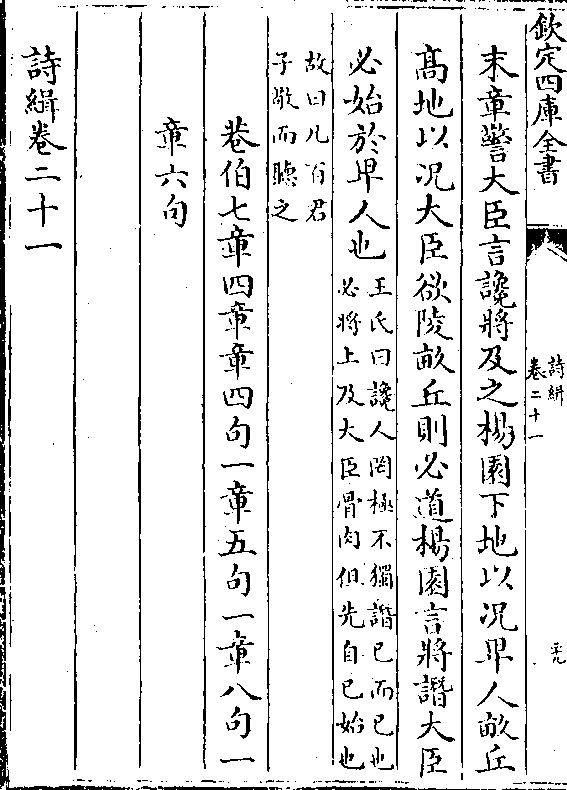 欽定四庫全書
詩緝
卷二十一
末章警大臣言讒將及之楊園下地以况卑人畝丘
高地以况大臣欲陵畝丘則必道楊園言將譖大臣
必始於卑人也
王氏曰讒人罔極不獨譖已而已也
必將上及大臣骨肉但先自已始也
故曰凡百君
子敬而聽之
巷伯七章四章章四句一章五句一章八句一
章六句
詩緝卷二十一